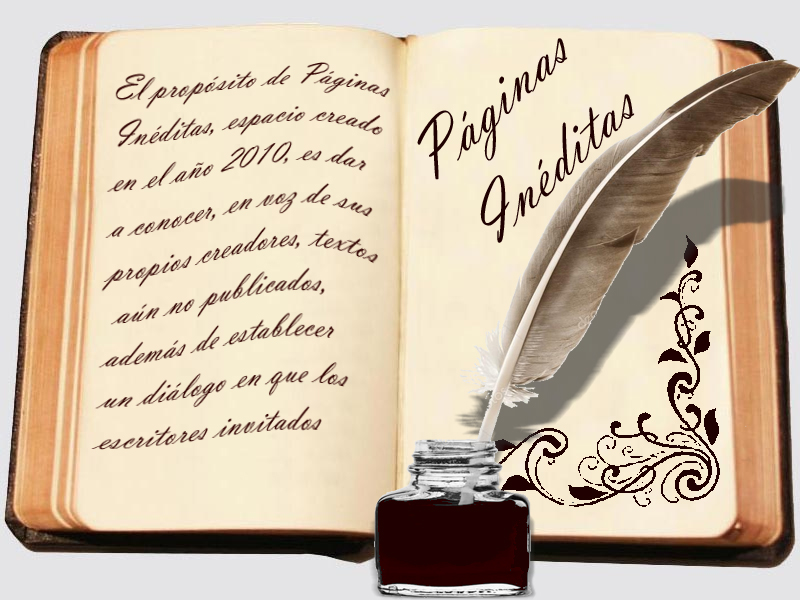 El propósito de Páginas
Inéditas, espacio creado
en el año 2010, es dar
a conocer, en voz de sus
propios creadores, textos
aún no publicados,
además de establecer
un diálogo en que los
escritores invitados
Páginas
Inéditas